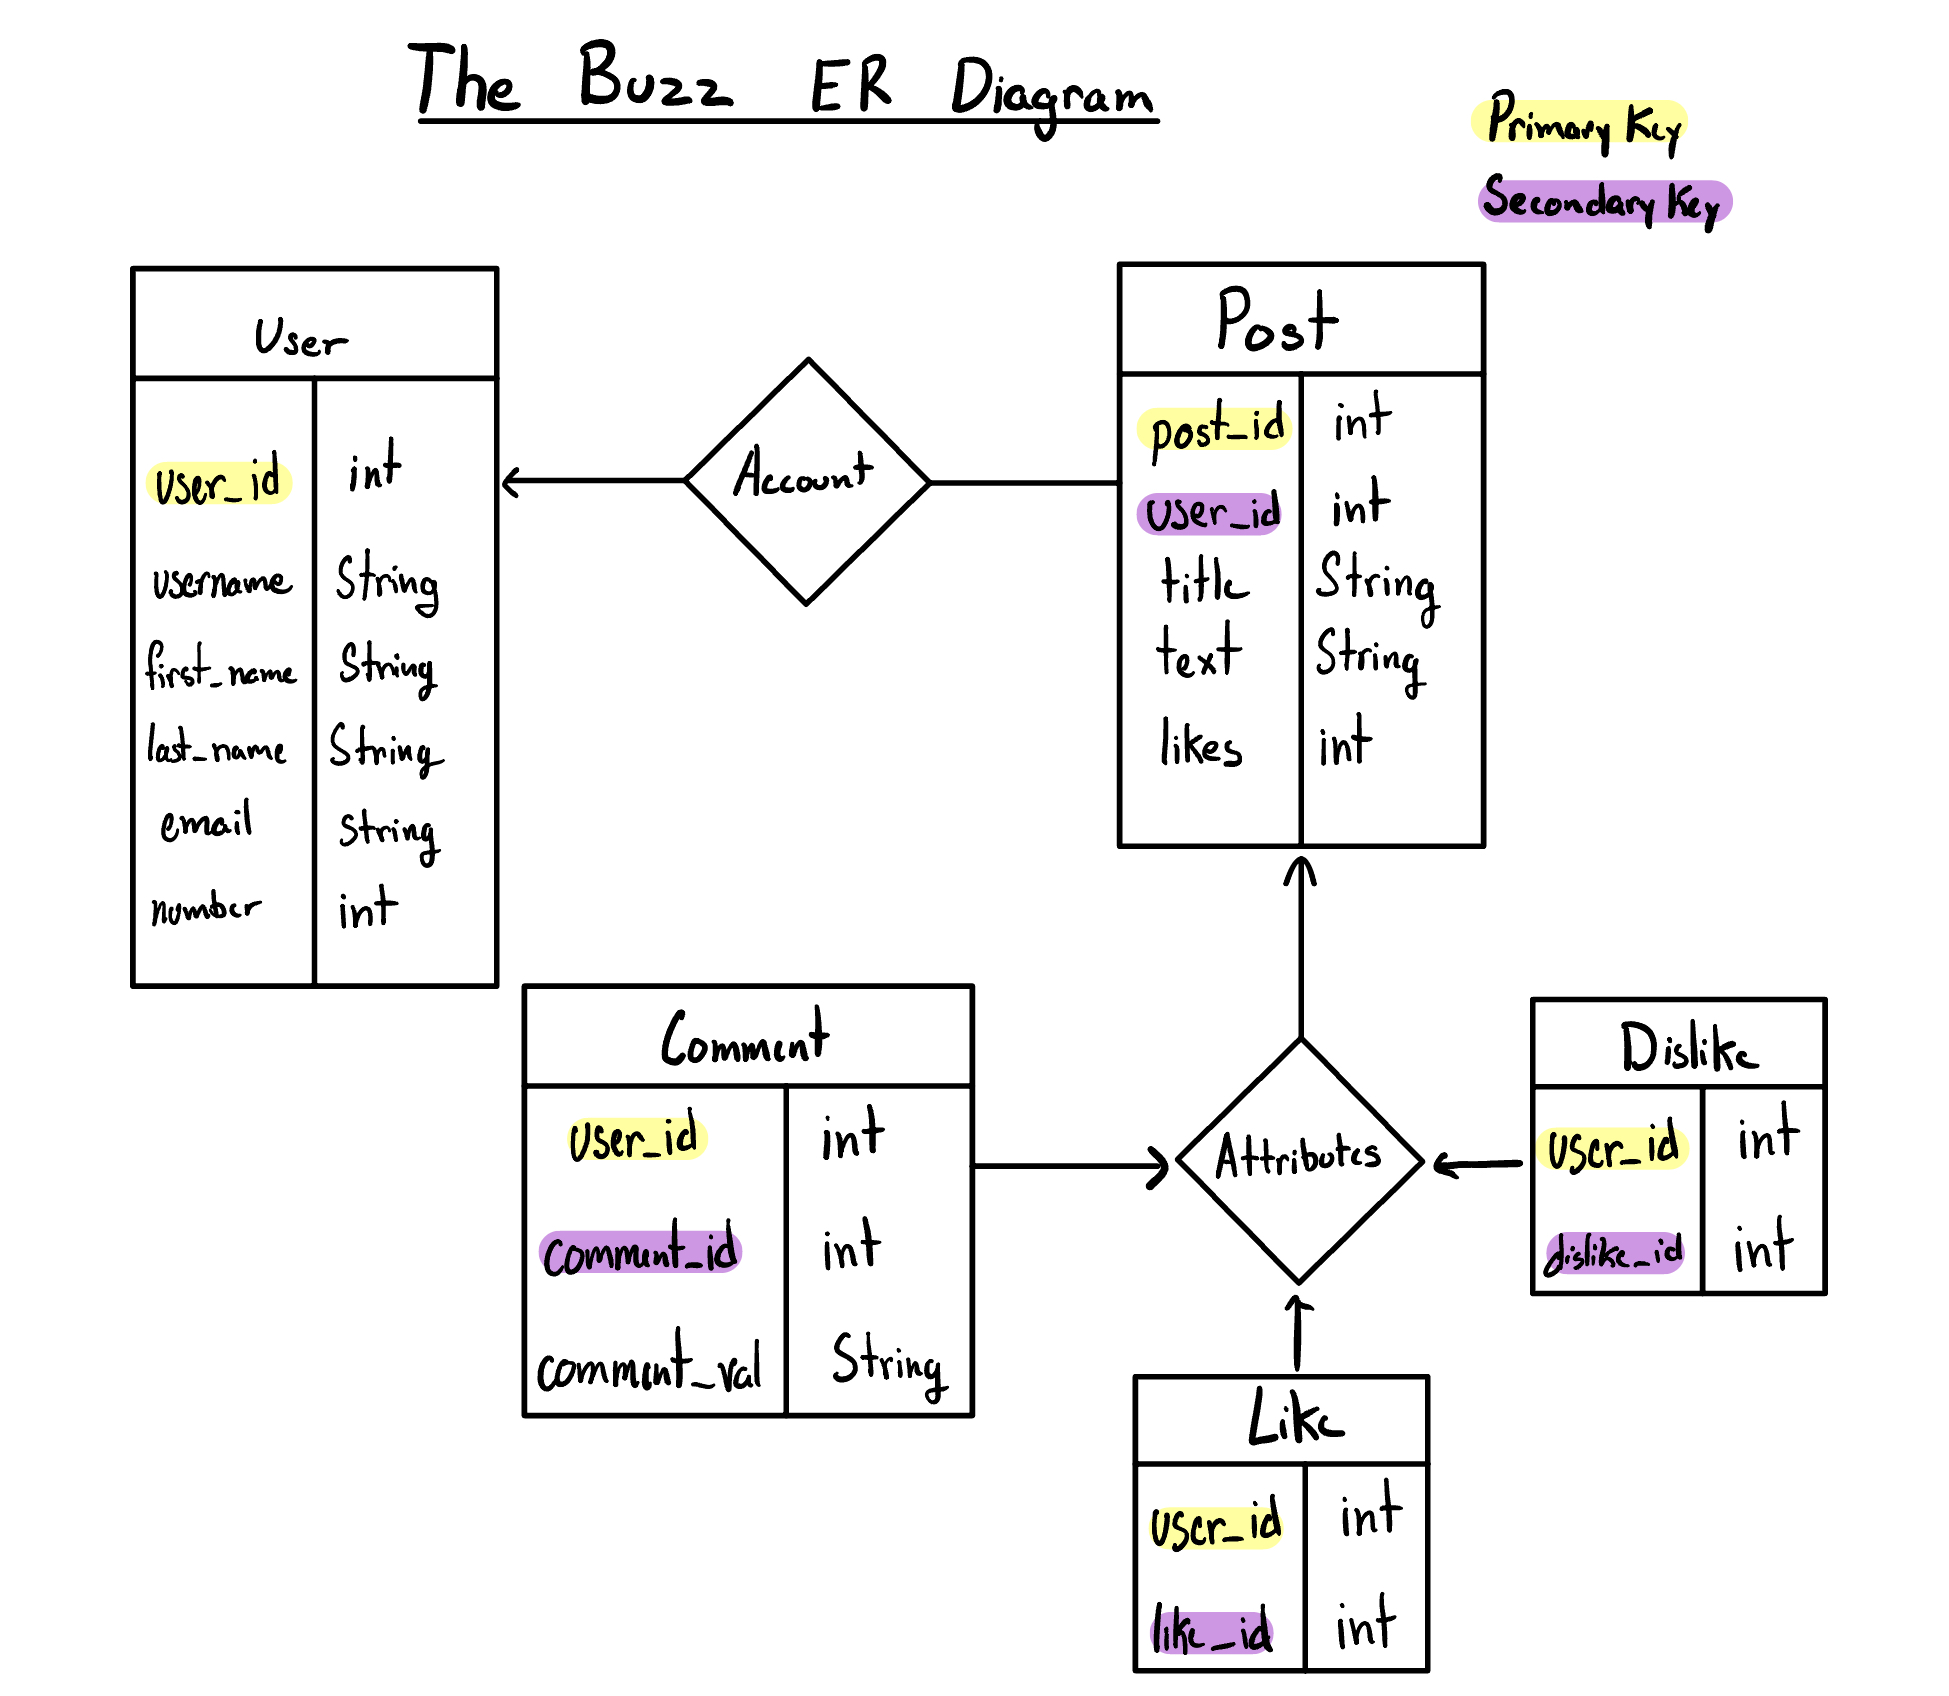 The Buzz ER Diagram
Primary Key
Secondary Key
User
user_id int
username String
first_name String
last_name String
email String
number int
Account
Post
post_id int
user_id int
title String
text String
likes int
Comment
user_id int
comment_id int
comment_val String
Attributes
Dislike
user_id int
dislike_id int
Like
user_id int
like_id int